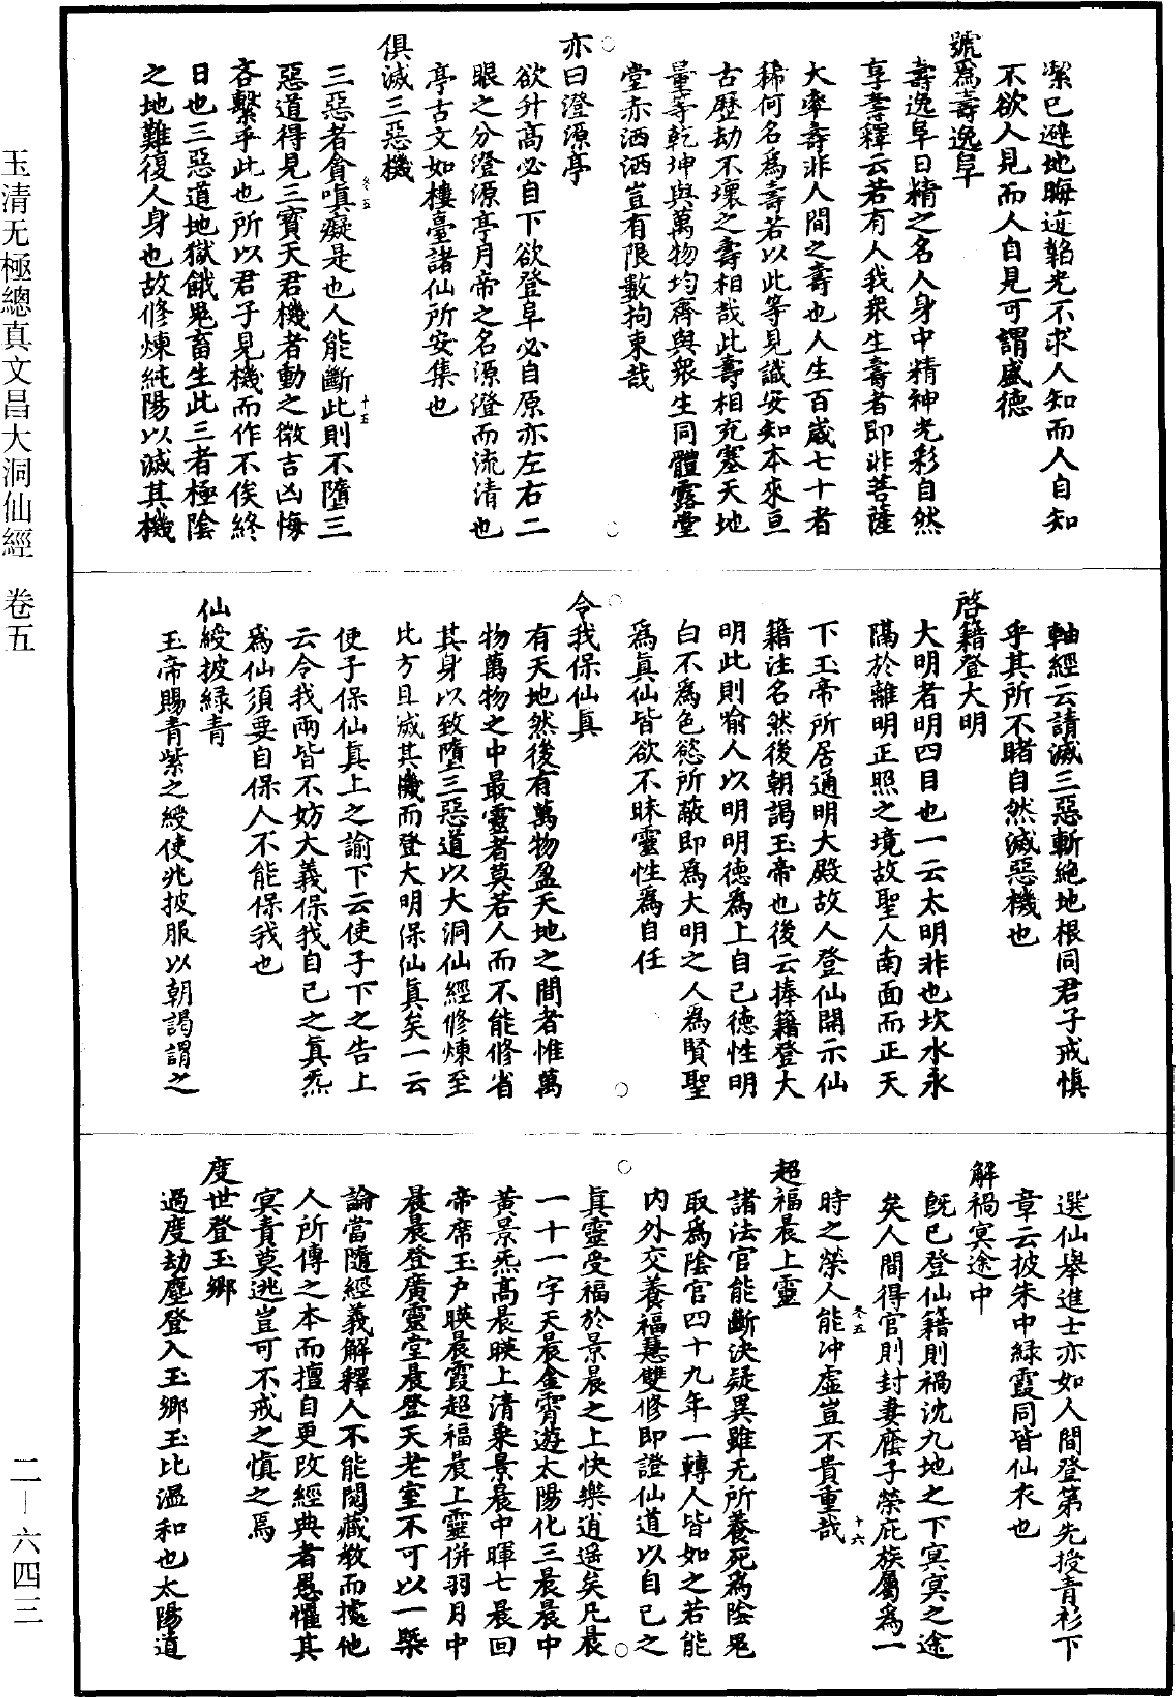 潔已避地晦迹韜光不求人知而人自知
不欲人見而人自見可謂盛德
號爲壽逸阜
壽逸阜日精之名人身中精神光彩自然
享壽釋云若有人我衆生壽者即非菩薩
大率壽非人間之壽也人生百歲七十者
稀何名爲壽若以此等見識安知本來亘
古歷劫不壞之壽相哉此壽相充塞天地
量等乾坤與萬物均齊與衆生同體露堂
堂赤洒洒豈有限數拘束哉
亦曰澄源亭
欲升高必自下欲登阜必自原亦左右二
眼之分澄源亭月帝之名源澄而流清也
亭古文如樓臺諸仙所安集也
俱滅三惡機
三惡者貪嗔癡是也人能斷此則不墮三
惡道得見三寳天君機者動之微吉凶悔
吝繫乎此也所以君子見機而作不俟終
日也三惡道地獄餓鬼畜生此三者極陰
之地難復人身也故修煉純陽以滅其機
軸經云請滅三惡斬絶地根同君子戒慎
乎其所不睹自然滅惡機也
啓籍登大明
大明者明四目也一云太明非也坎水永
隔於離明正照之境故聖人南面而正天
下玉帝所居通明大殿故人登仙開示仙
籍注名然後朝謁玉帝也後云捧籍登大
明此則喻人以明明德爲上自己德性明
白不爲色慾所蔽即爲大明之人爲賢聖
爲眞仙皆欲不昧靈性爲自任
令我保仙眞
有天地然後有萬物盈天地之間者惟萬
物萬物之中最靈者莫若人而不能修省
其身以致墮三惡道以大洞仙經修煉至
比方且滅其機而登大明保仙眞矣一云
使子保仙眞上之諭下云使子下之告上
云令我兩皆不妨大義保我自己之眞炁
爲仙須要自保人不能保我也
仙綬披緑青
玉帝賜青紫之綬使兆披服以朝謁謂之
選仙舉進士亦如人間登第先授青衫下
章云披朱中緑霞同皆仙衣也
解禍冥途中
既已登仙籍則禍沈九地之下冥冥之途
矣人間得官則封妻廕子榮庇族屬爲一
時之榮人能冲虛豈不貴重哉
超福晨上靈
諸法官能斷決疑異雖无所養死爲陰鬼
取爲陰官四十九年一轉人皆如之若能
内外交養福慧雙修即證仙道以自己之
眞靈受福於景晨之上快樂逍遥矣凡晨
一十一字天晨金霄遊太陽化三晨晨中
黄景炁高晨暎上清乗景晨中暉七晨回
帝席玉户暎晨霞超福晨上靈併羽月中
晨晨登廣靈堂晨登天老室不可以一槩
論當隨經義解釋人不能閲藏教而據他
人所傳之本而擅自更改經典者愚懼其
冥責莫逃豈可不戒之慎之焉
度世登玉鄉
過度劫塵登入玉鄉玉比溫和也太陽道
冬五
十五
冬五
十六
玉清无極總真文昌大洞仙經 卷五
二—六四三